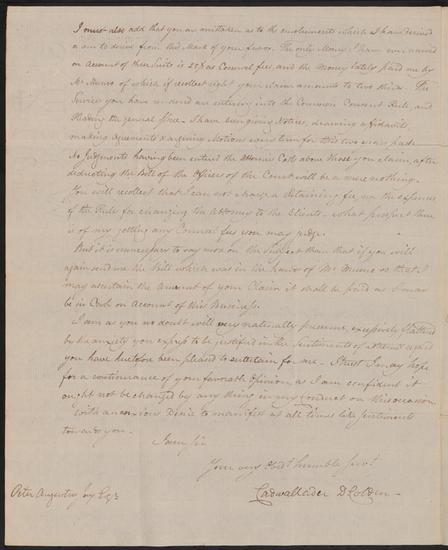 I must also add that you are mistaken as to the emoluments which I have derived
or am to derive from this Mark of your favor. The only Money I have ever received
on Account of these Suits is 25$ as Counsel fees, and the money lately paid me by
Mr Munro of which if I recollect right your claim amounts to two thirds. The
Services you have rendered are entering into the Common Consent Rule, and
Pleading the general Issue. I have been giving Notices, drawing affidavits,
making agreements & arguing Motions every term for this two years past.
No Judgments having been entered the Attornies Costs above those you claim, after
deducting the bills of the Officers of the Court will be a mere nothing.
You will recollect that I can not charge a Retaining fee, nor the expences
of the Rule for changing the Attorney to the Clients, what prospect there
is of my getting any Counsel fees you may judge.
But it is unnecessary to say more on the subject than that if you will
again send me the Bill which was in the hands of Mr Munro so that I
may ascertain the amount of your Claim it shall be paid as I may
be in Cash on Account of this Business.
I am as you no doubt will very naturally presume, excessively flattered
by the anxiety you express to be justified in the Sentiments of
you have heretofore been pleased to entertain for me. I trust I may hope
for a continuance of your favorable Opinion, as I am confident it
ought not be changed by any thing in my Conduct on this occasion
with an anxious Desire to manifest at all times like Sentiments
towards you.
I am Sir
Your very Obedt humble Servt
Cadwallader D Colden
Peter Augustus Jay Esqr